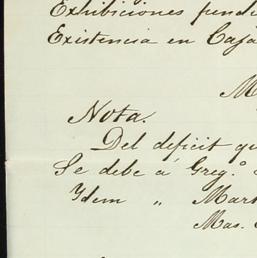 Exhibiciones
Existencia en Caja
Nota.
Del deficit
Se debe á Greg.º
Ydem „
Mas.